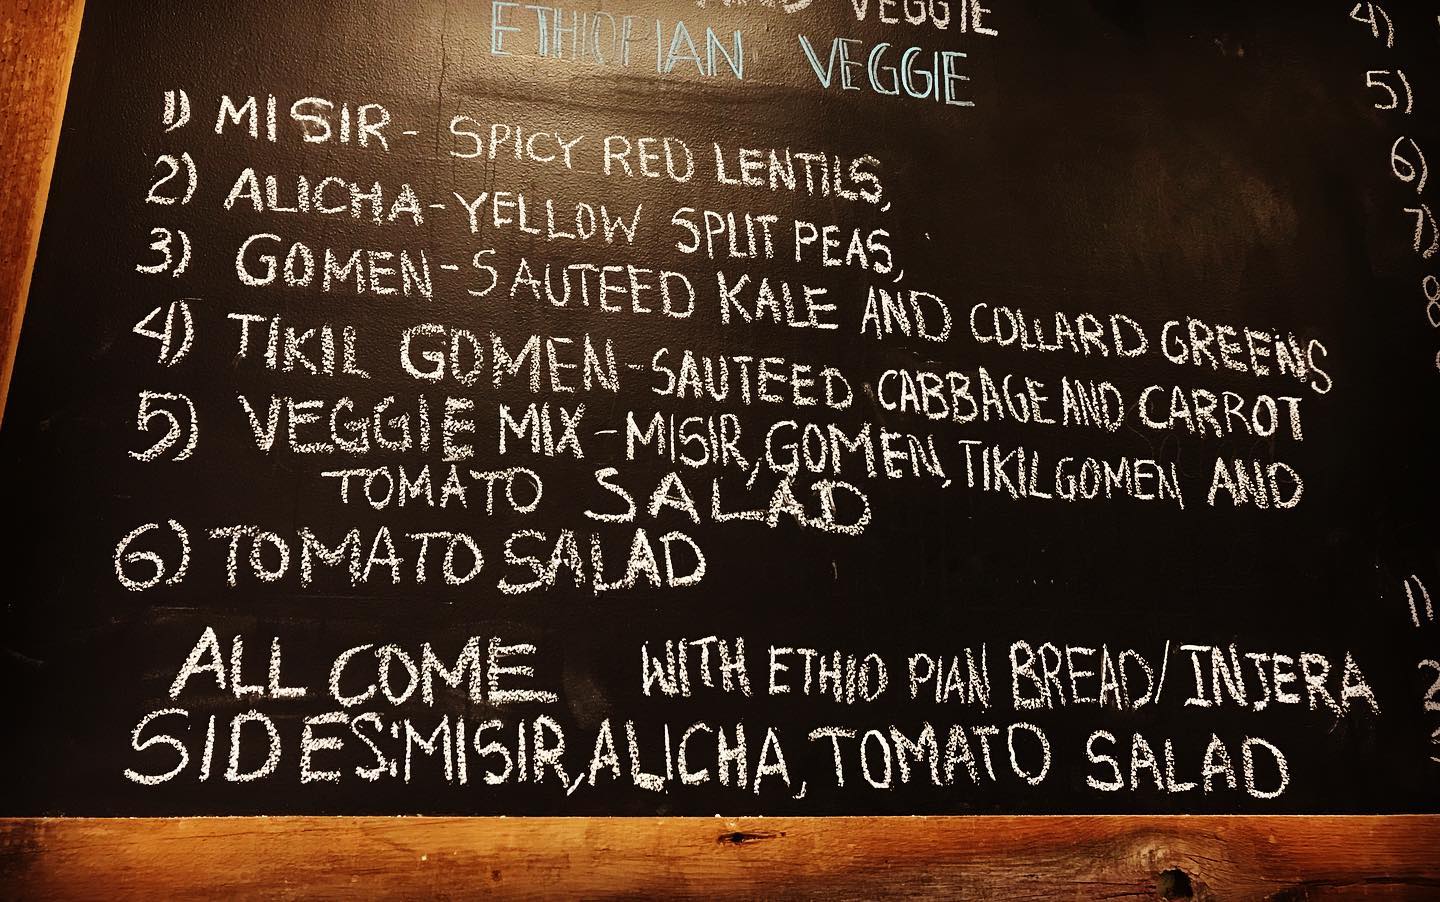 VEGGIE
ETHIOPIAN VEGGIE
1) MISIR - SPICY RED LENTILS,
2) ALICHA - YELLOW SPLIT PEAS,
3) GOMEN - SAUTEED KALE AND COLLARD GREENS
4) TIKIL GOMEN - SAUTEED CABBAGE AND CARROT
5) VEGGIE MIX - MISIR, GOMEN, TIKIL GOMEN AND
TOMATO SALAD
6) TOMATO SALAD
ALL COME WITH ETHIOPIAN BREAD/INJERA
SIDES: MISIR, ALICHA, TOMATO SALAD
4)
5)
6)
7)
8
1)
2
3